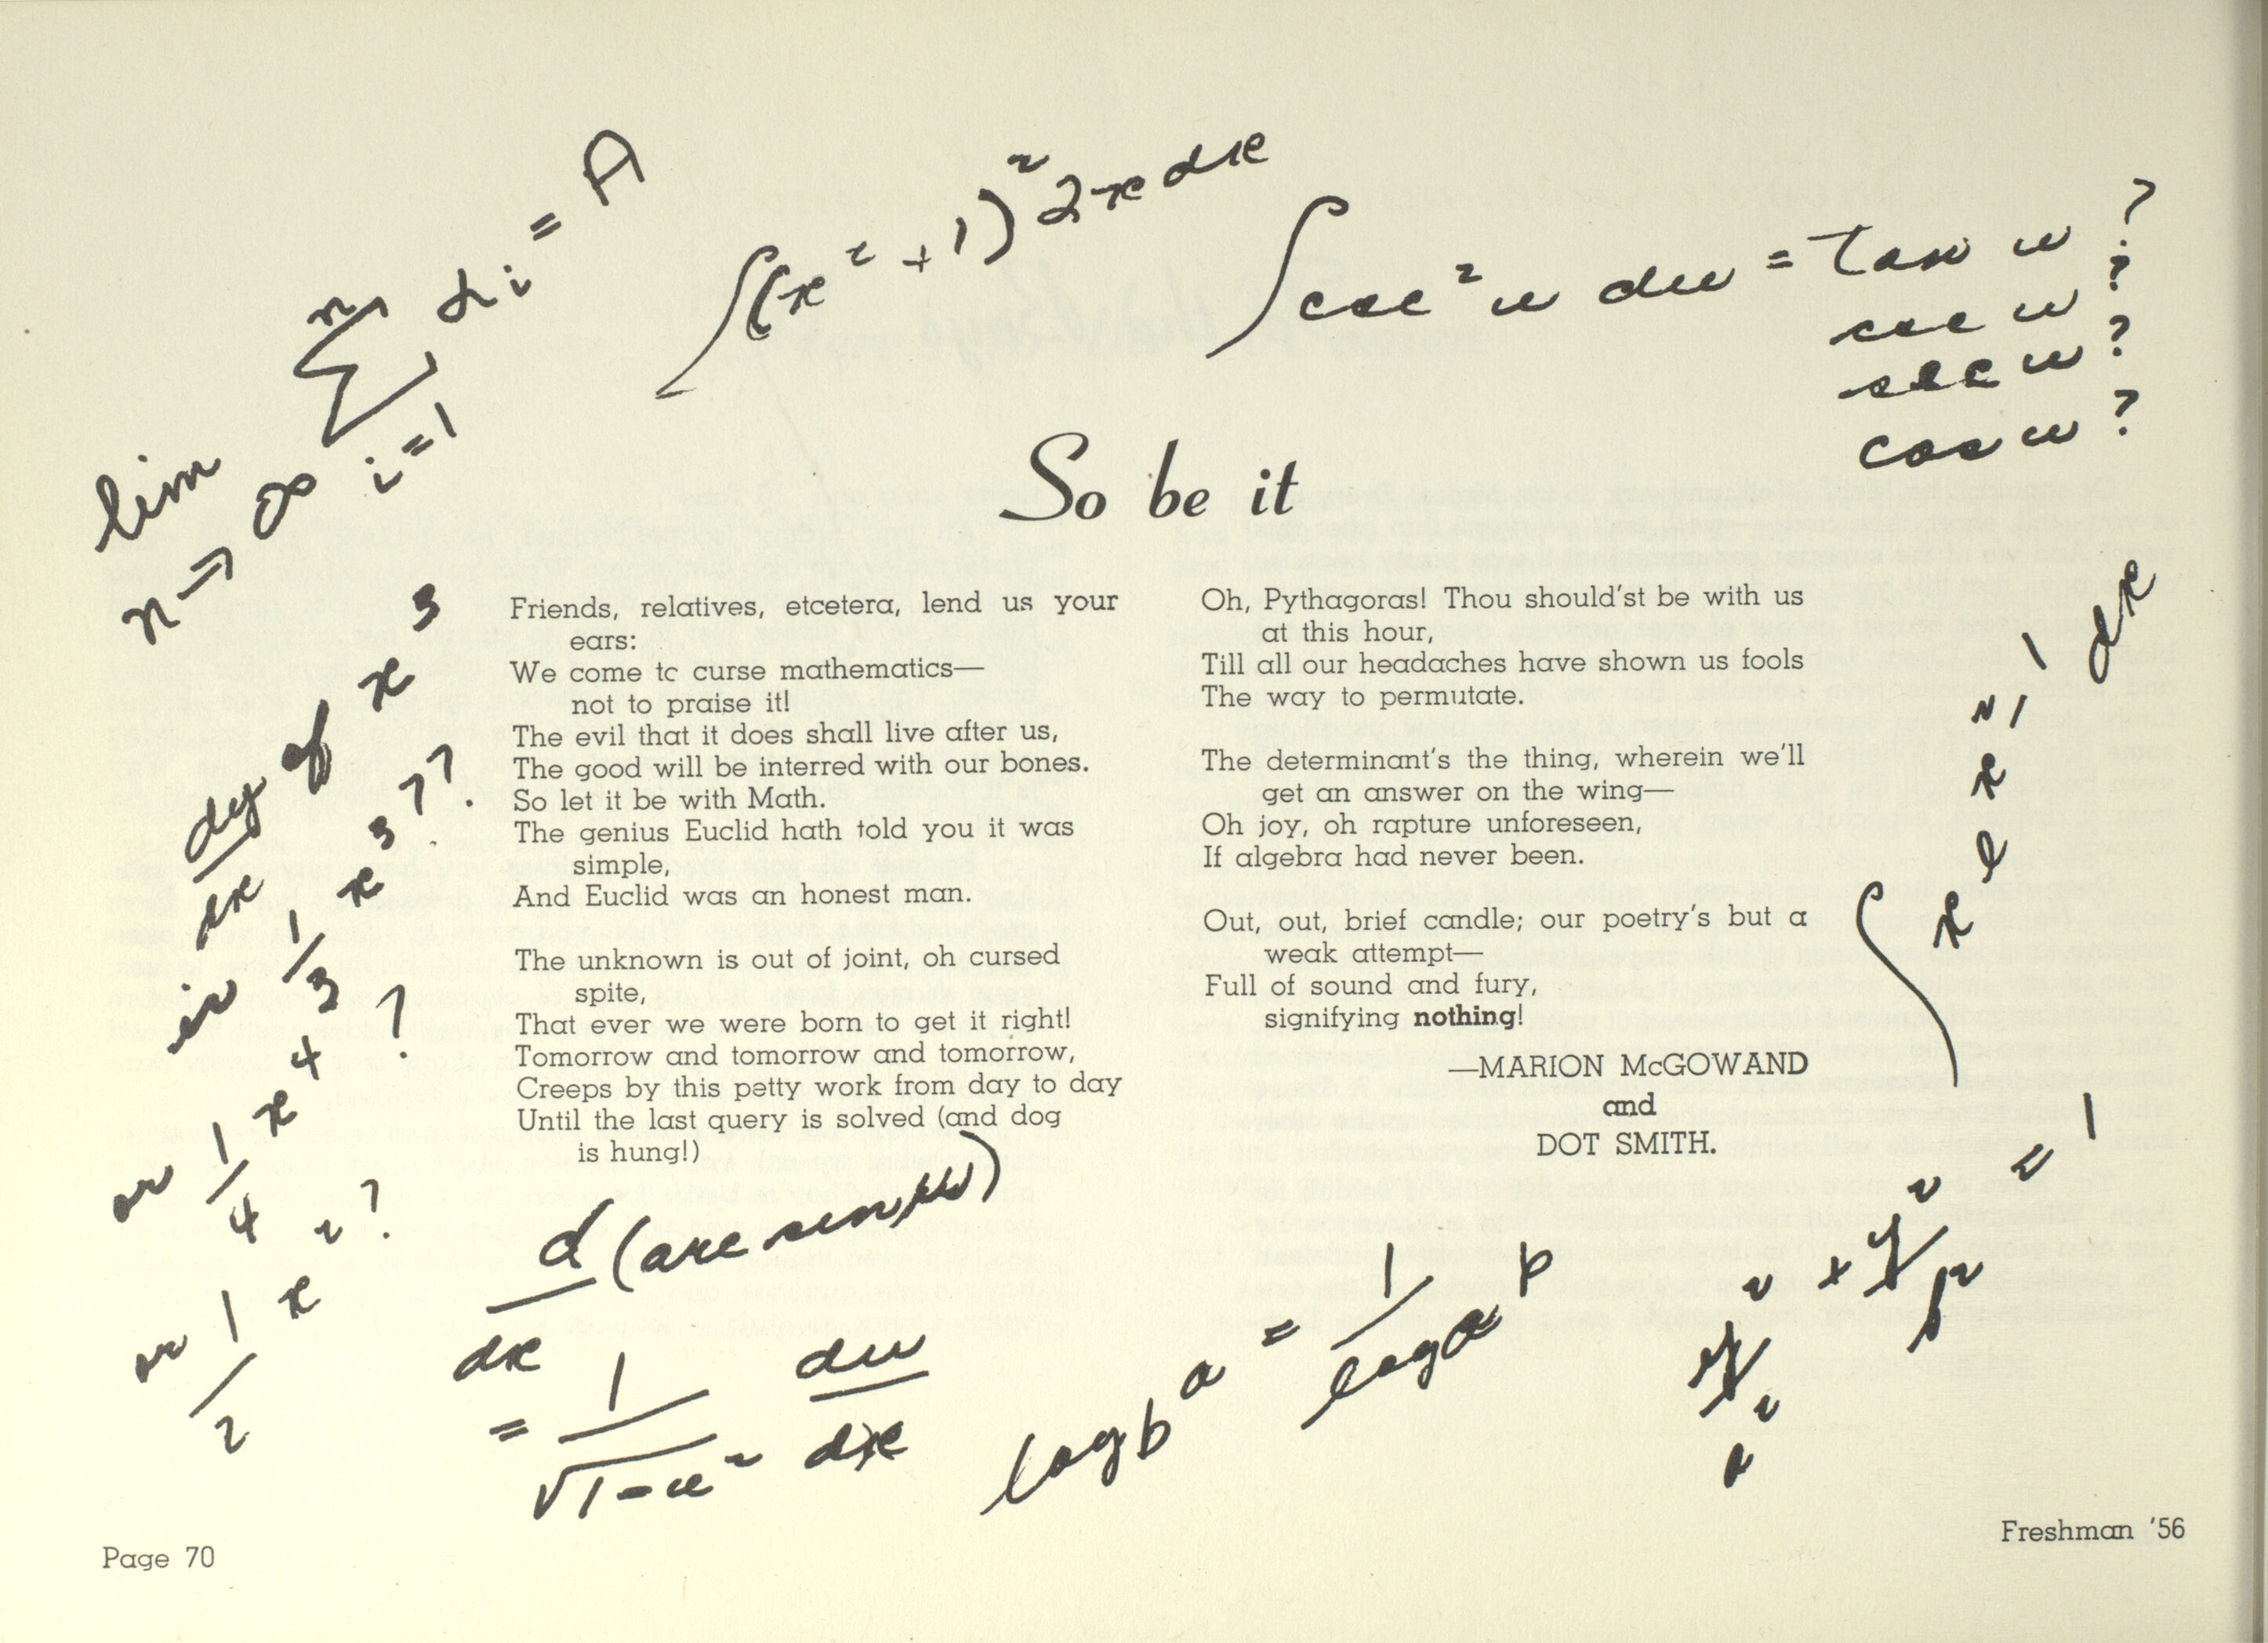 lim n→∞ n Σ i=1 αi = A
∫(x²+1)² 2x dx
∫csc² u du = tan u ?
csc u ?
sec u ?
cos u ?
So be it
dy/dx of x³
is 1/3 x³ ??
or 1/4 x⁴ ?
or 1/2 x² ?
Friends, relatives, etcetera, lend us your
ears:
We come to curse mathematics—
not to praise it!
The evil that it does shall live after us,
The good will be interred with our bones.
So let it be with Math.
The genius Euclid hath told you it was
simple,
And Euclid was an honest man.
The unknown is out of joint, oh cursed
spite,
That ever we were born to get it right!
Tomorrow and tomorrow and tomorrow,
Creeps by this petty work from day to day
Until the last query is solved (and dog
is hung!)
Oh, Pythagoras! Thou should'st be with us
at this hour,
Till all our headaches have shown us fools
The way to permutate.
The determinant's the thing, wherein we'll
get an answer on the wing—
Oh joy, oh rapture unforeseen,
If algebra had never been.
Out, out, brief candle; our poetry's but a
weak attempt—
Full of sound and fury,
signifying nothing!
—MARION McGOWAND
and
DOT SMITH.
d/dx (arc sin u)
= 1/√1-u² du/dx
log b a = 1/log a b
= 1
Page 70
Freshman '56